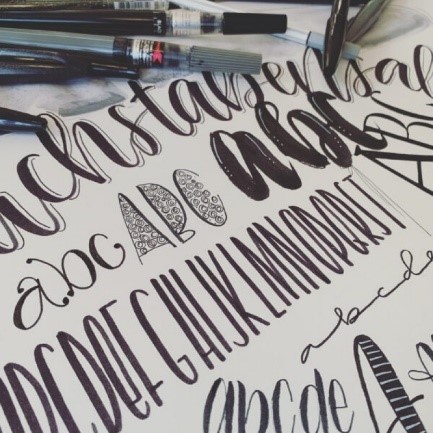 chstabensal
abc
ABC
abc
ABC
abcde
ABCDEFGHIJKLMNOPQRST
abcde
A